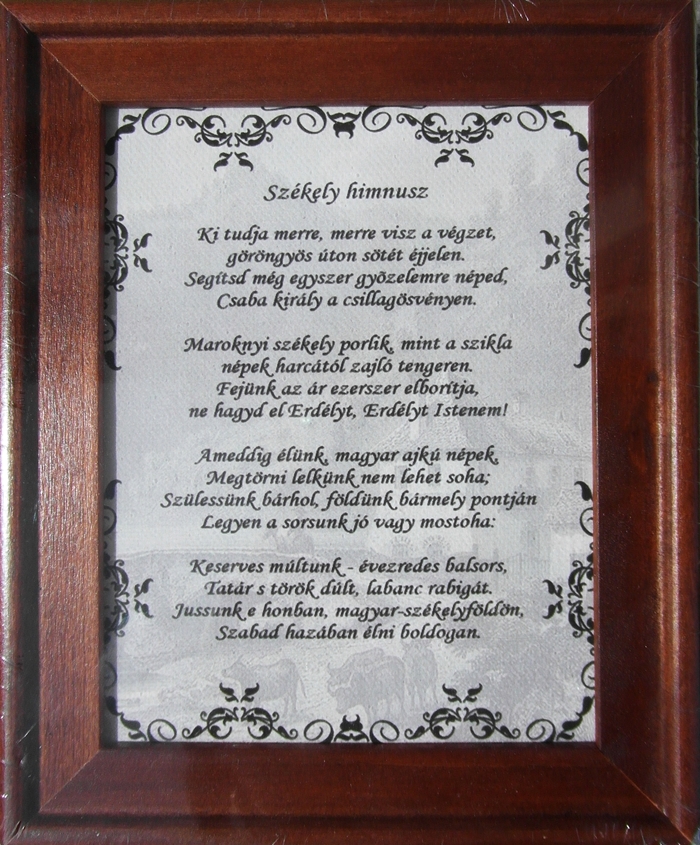 Székely himnusz
Ki tudja merre, merre visz a végzet,
göröngyös úton sötét éjjelen.
Segítsd még egyszer gyõzelemre néped,
Csaba király a csillagösvényen.
Maroknyi székely porlik, mint a szikla
népek harcától zajló tengeren.
Fejünk az ár ezerszer elborítja,
ne hagyd el Erdélyt, Erdélyt Istenem!
Ameddig élünk, magyar ajkú népek,
Megtörni lelkünk nem lehet soha;
Szülessünk bárhol, földünk bármely pontján
Legyen a sorsunk jó vagy mostoha:
Keserves múltunk - évezredes balsors,
Tatár s török dúlt, labanc rabigát.
Jussunk e honban, magyar-székelyföldön,
Szabad hazában élni boldogan.